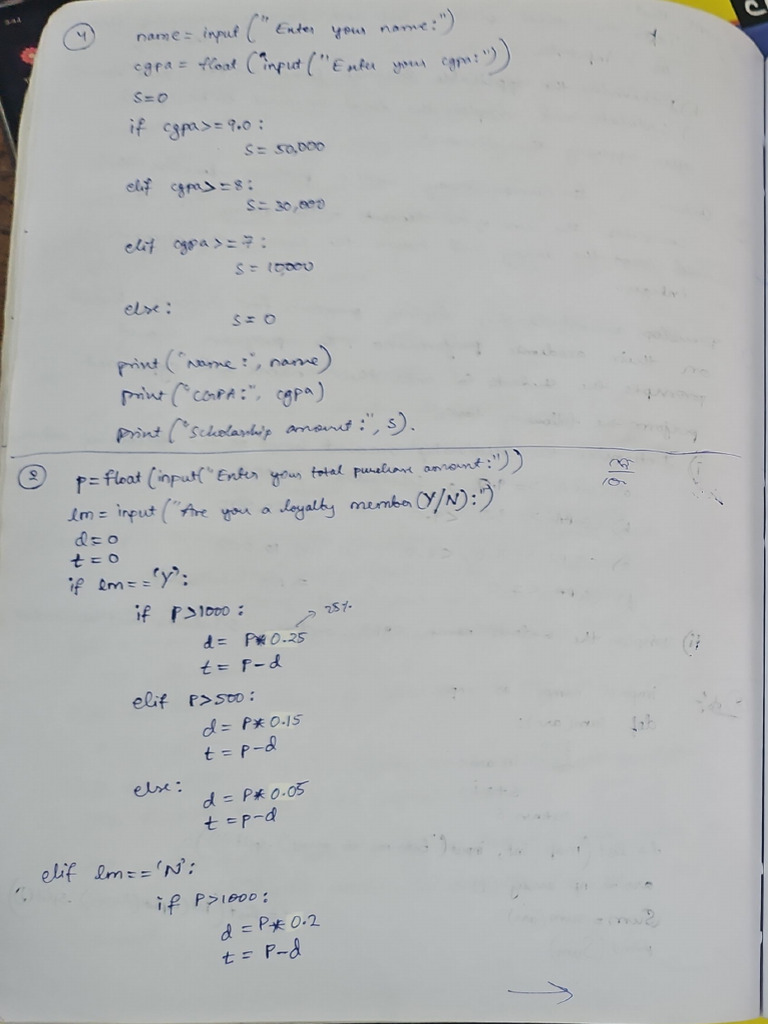 4
name = input ("Enter your name:")
cgpa = float (input ("Enter your cgpa:"))
S=0
if cgpa>=9.0:
S= 50,000
elif cgpa>=8:
S= 30,000
elif cgpa>=7:
S= 10,000
else:
S= 0
print ("Name:", name)
print ("CGPA:", cgpa)
print ("Scholarship amount:", S).
2
p=float (input("Enter your total purchase amount:"))
lm= input ("Are you a loyalty member (Y/N):")
d=0
t=0
if lm=='Y':
if P>1000:
25%
d= P*0.25
t= P-d
elif P>500:
d= P*0.15
t= p-d
else:
d= P*0.05
t=p-d
elif lm=='N':
if P>1000:
d=P*0.2
t= P-d